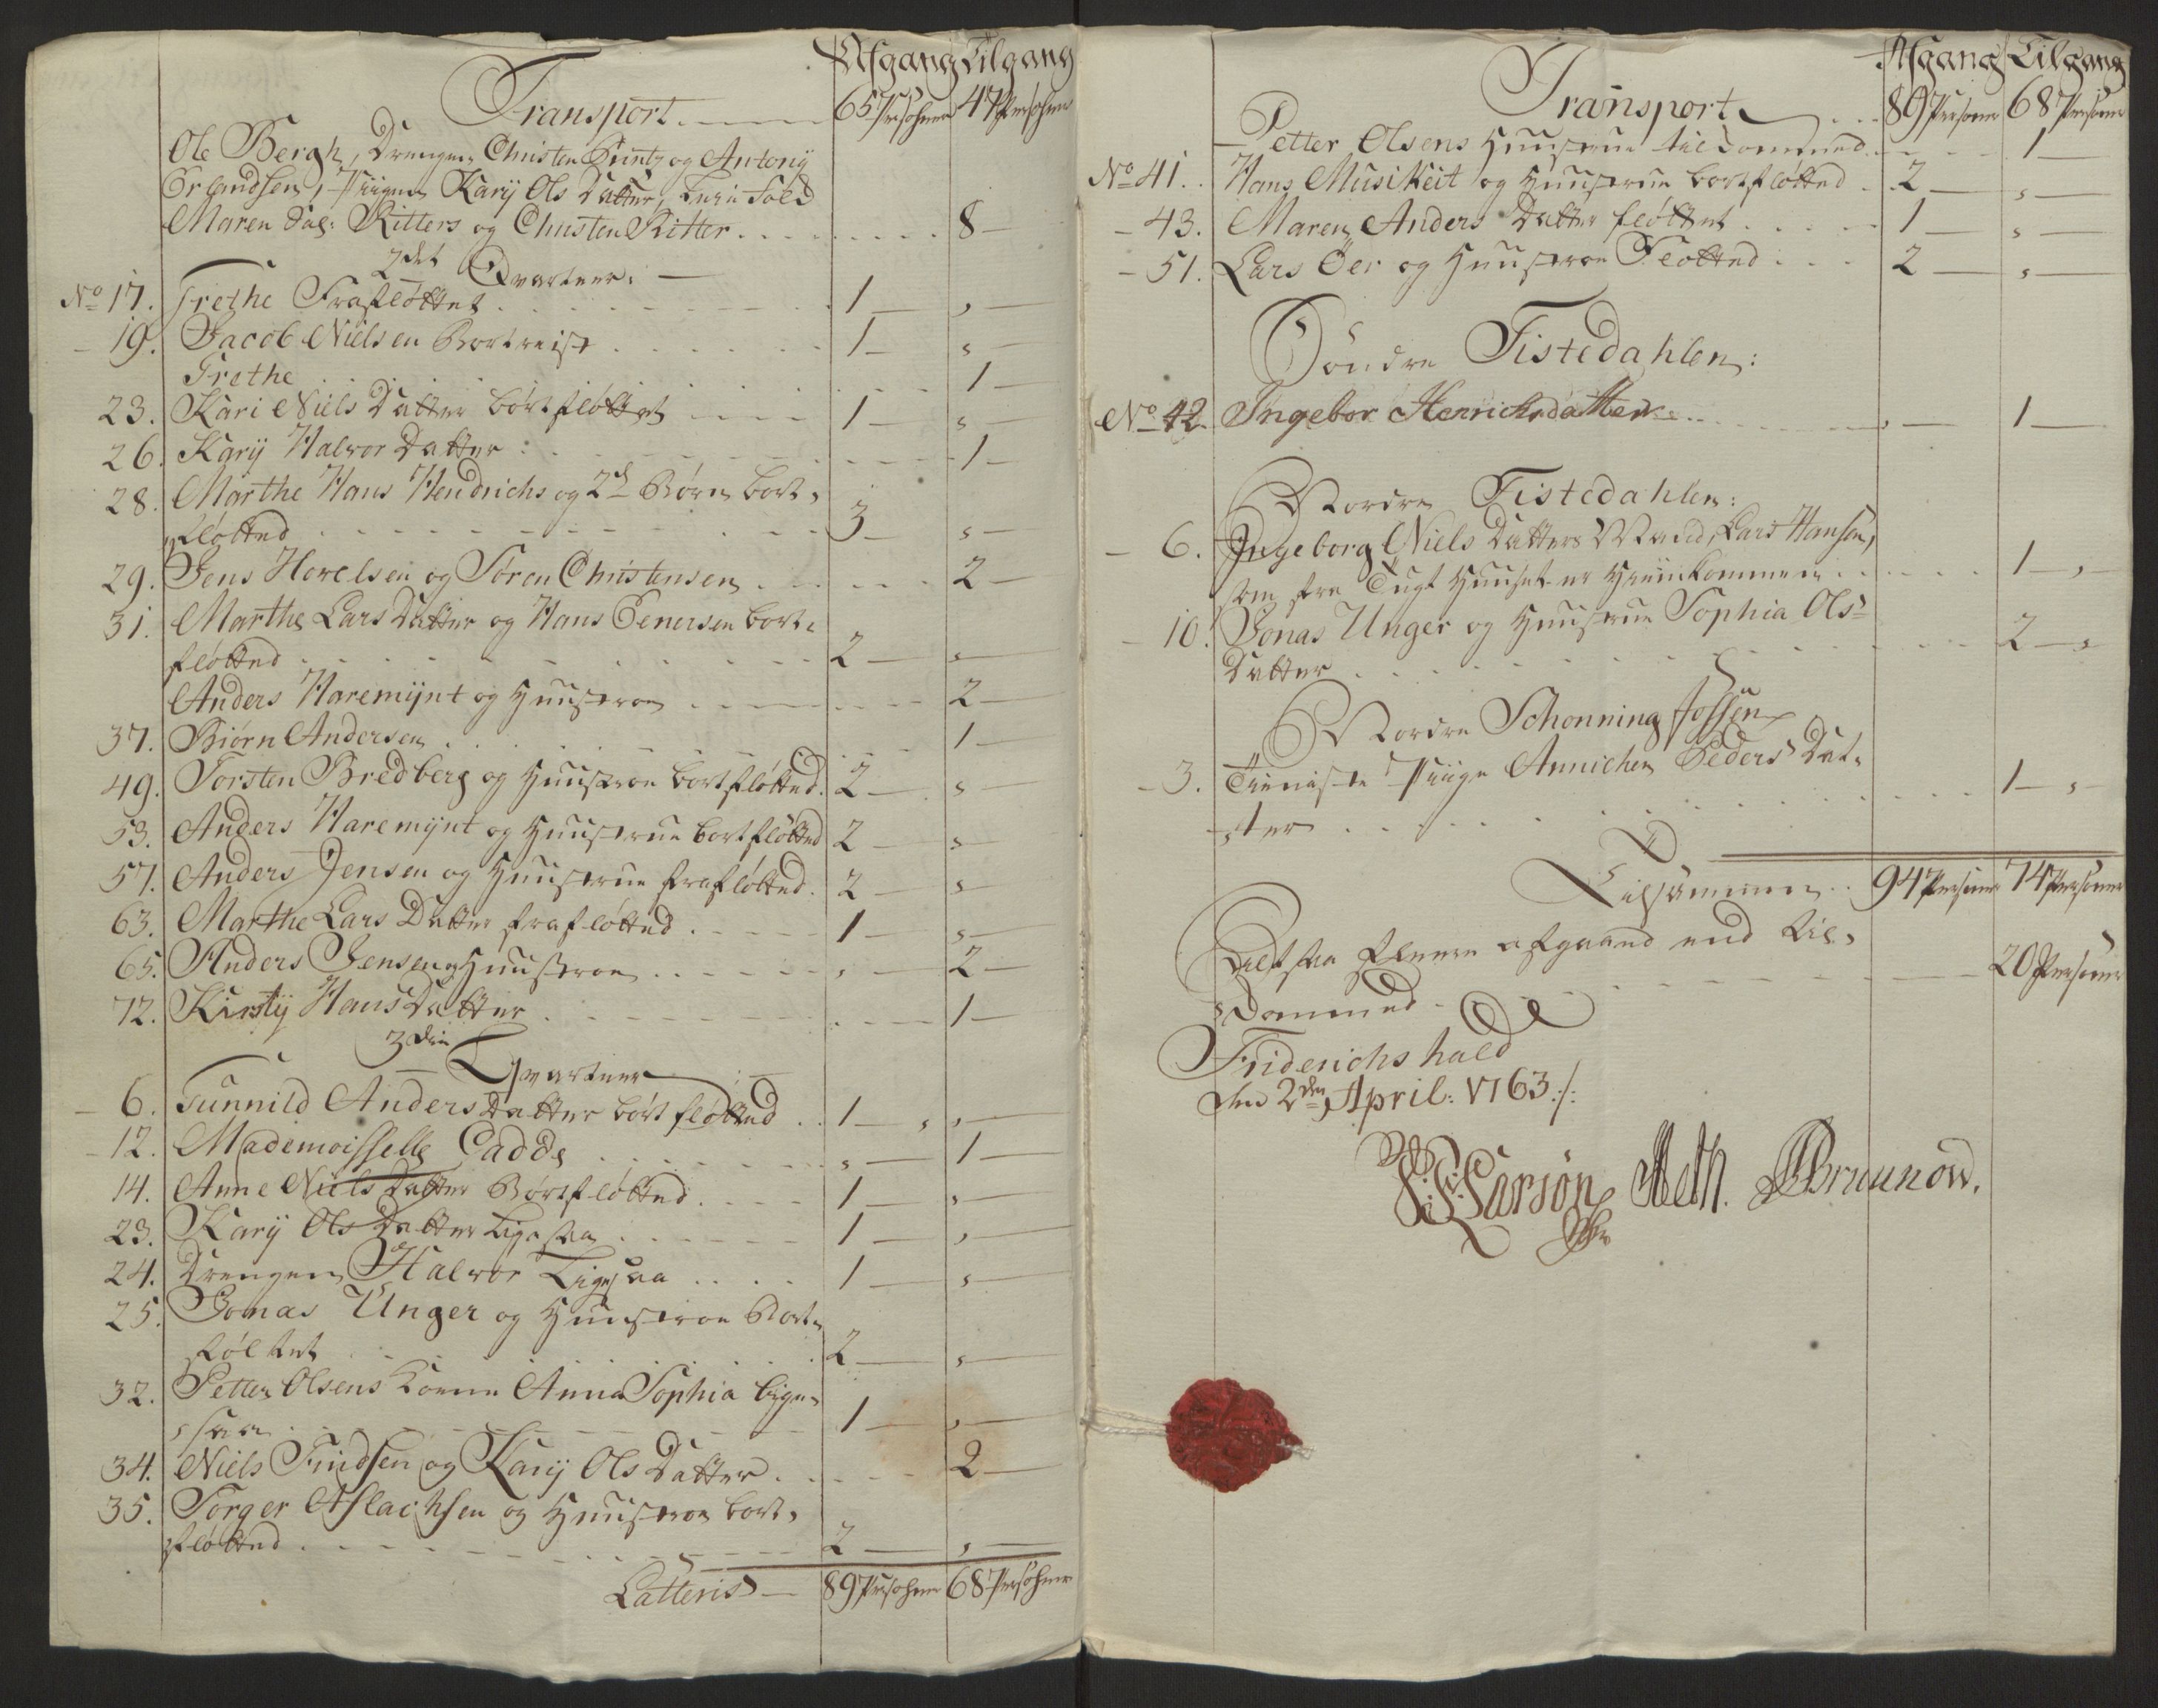 Afgang Tilgang
Transport 65 Persohner 47 Persohner
Ole Bergh, Drengene Christen Buntz og Antony
Erlandsen, Piigen Kary Ols Datter,
Maren Sal: Ritters og Christen Ritter 8
2det Qvarteer:
No 17. Grethe Trafløttet 1 ,
19. Jacob Nielsen Bortreist 1 ,
Grethe 1
23. Kari Niels Datter bortfløttet 1 ,
26. Kary Halvor Datter 1
28. Marthe Hans Hendrichs og 2de Børn bort-
fløtted 3 ,
29. Jens Hovelsen og Søren Christensen 2
31. Marthe Lars Datter og Hans Eenersen bort-
fløtted 2 ,
Anders Haremynt og Huustroe 2
37. Biørn Andersen 1
49. Torsten Bredberg og Huustroe bortfløtted 2 ,
53. Anders Haremynt og Huustrue bortfløtted 2 ,
57. Anders Jensen og Huustrue frafløtted 2 ,
63. Marthe Lars Datter frafløtted 1 ,
65. Anders Jensen og Huustroe , 2
72. Kirsty Hans Datter 1
3die
Qvarteer
6. Gunnild Anders Datter bortfløtted 1 ,
12. Mademoisselle Cadde , 1
14. Anne Niels Datter Bortfløtted 1 ,
23. Kary Ols Datter ligesaa 1 ,
24. Drengen Halvor Ligesaa 1 ,
25. Jonas Unger og Huustroe Bort-
føltet 2 ,
32. Petter Olsens Konne Anna Sophia lige-
saa 1 ,
34. Niels Findsen og Kary Ols Datter 2
35. Torger Aslachsen og Huustroe bort-
fløtted 2 ,
Latteris 89 Persohner 68 Persohner
Afgang Tilgang
Transport 89 Personer 68 Personer
Petter Olsens Huustrue tilkommed 1
No 41. Hans Musikeit og Huustrue bortfløtted 2 ,
43. Maren Anders Datter fløttet 1 ,
51. Lars Öer og Huustroe Fløtted 2 ,
Söndre Tistedahlen:
No 42 Ingebor Henrichsdatter , 1
Nordre Tistedahlen:
6. Ingeborg Niels Datters Mand, Lars Hansen,
som fra Tugt Huuset er Hiemkommen 1 ,
10. Jonas Unger og Huustrue Sophia Ols-
Datter 2 ,
Nordre Schonning fossen
3. Tieniste Piige Annichen Peders Dat-
ter 1 ,
Tilsammen 94 Persohner 74 Personer
Altsaa fleere afgaaed end til-
kommed 20 Personer
Friderichshald
den 2den April: 1763./.
Larson Meth. Bruunow.